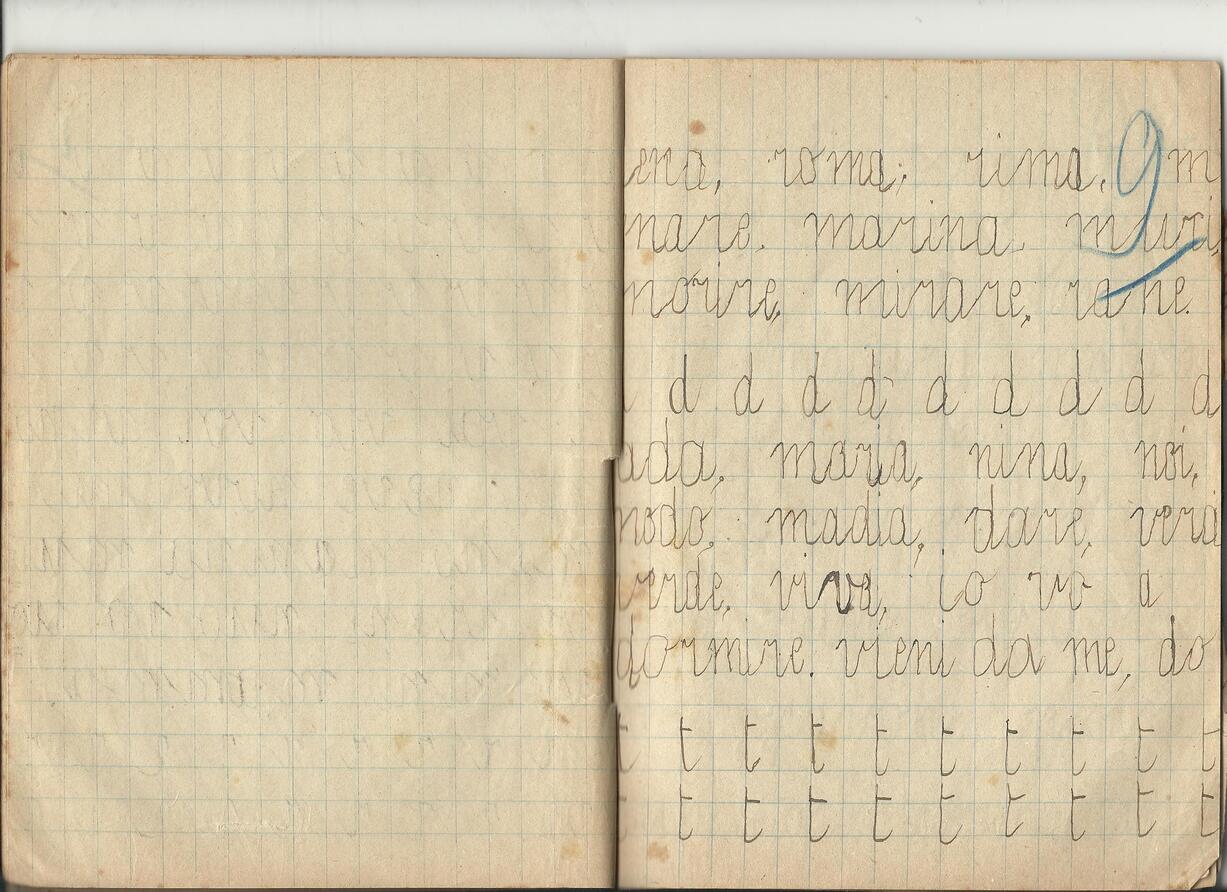 ena, roma, rima, 9 m
nare. marina. muri,
morire, mirare, rane.
d d d d d d d d d
ada, maria, nina, noi,
modo, madia, dare, vera
verde, viva, io vo a
dormire. vieni da me, do
t t t t t t t t t t
t t t t t t t t t t